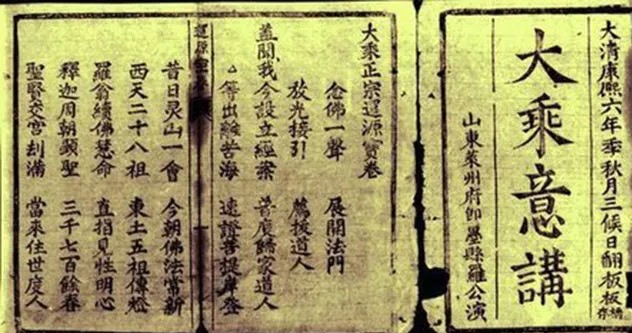 大清康熙六年季秋月三候日翻板板
大乘意講
山東萊州府即墨縣羅公演
大乘正宗還源寶卷
念佛一聲 展開法門
放光接引 薦拔道人
蓋聞我今設立經案 普度家道人
等出離苦海 速證菩提岸登
昔日灵山一會 今朝佛法當新
西天二十八祖 東土五祖傳燈
羅翁續佛慧命 直指見性明心
釋迦周朝顯聖 三千七百餘春
聖賢交宫刦滿 當來住世度人